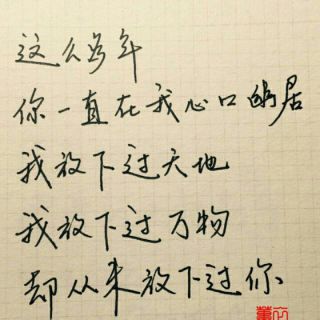 这么多年
你一直在我心口幽居
我放下过天地
我放下过万物
却从未放下过你